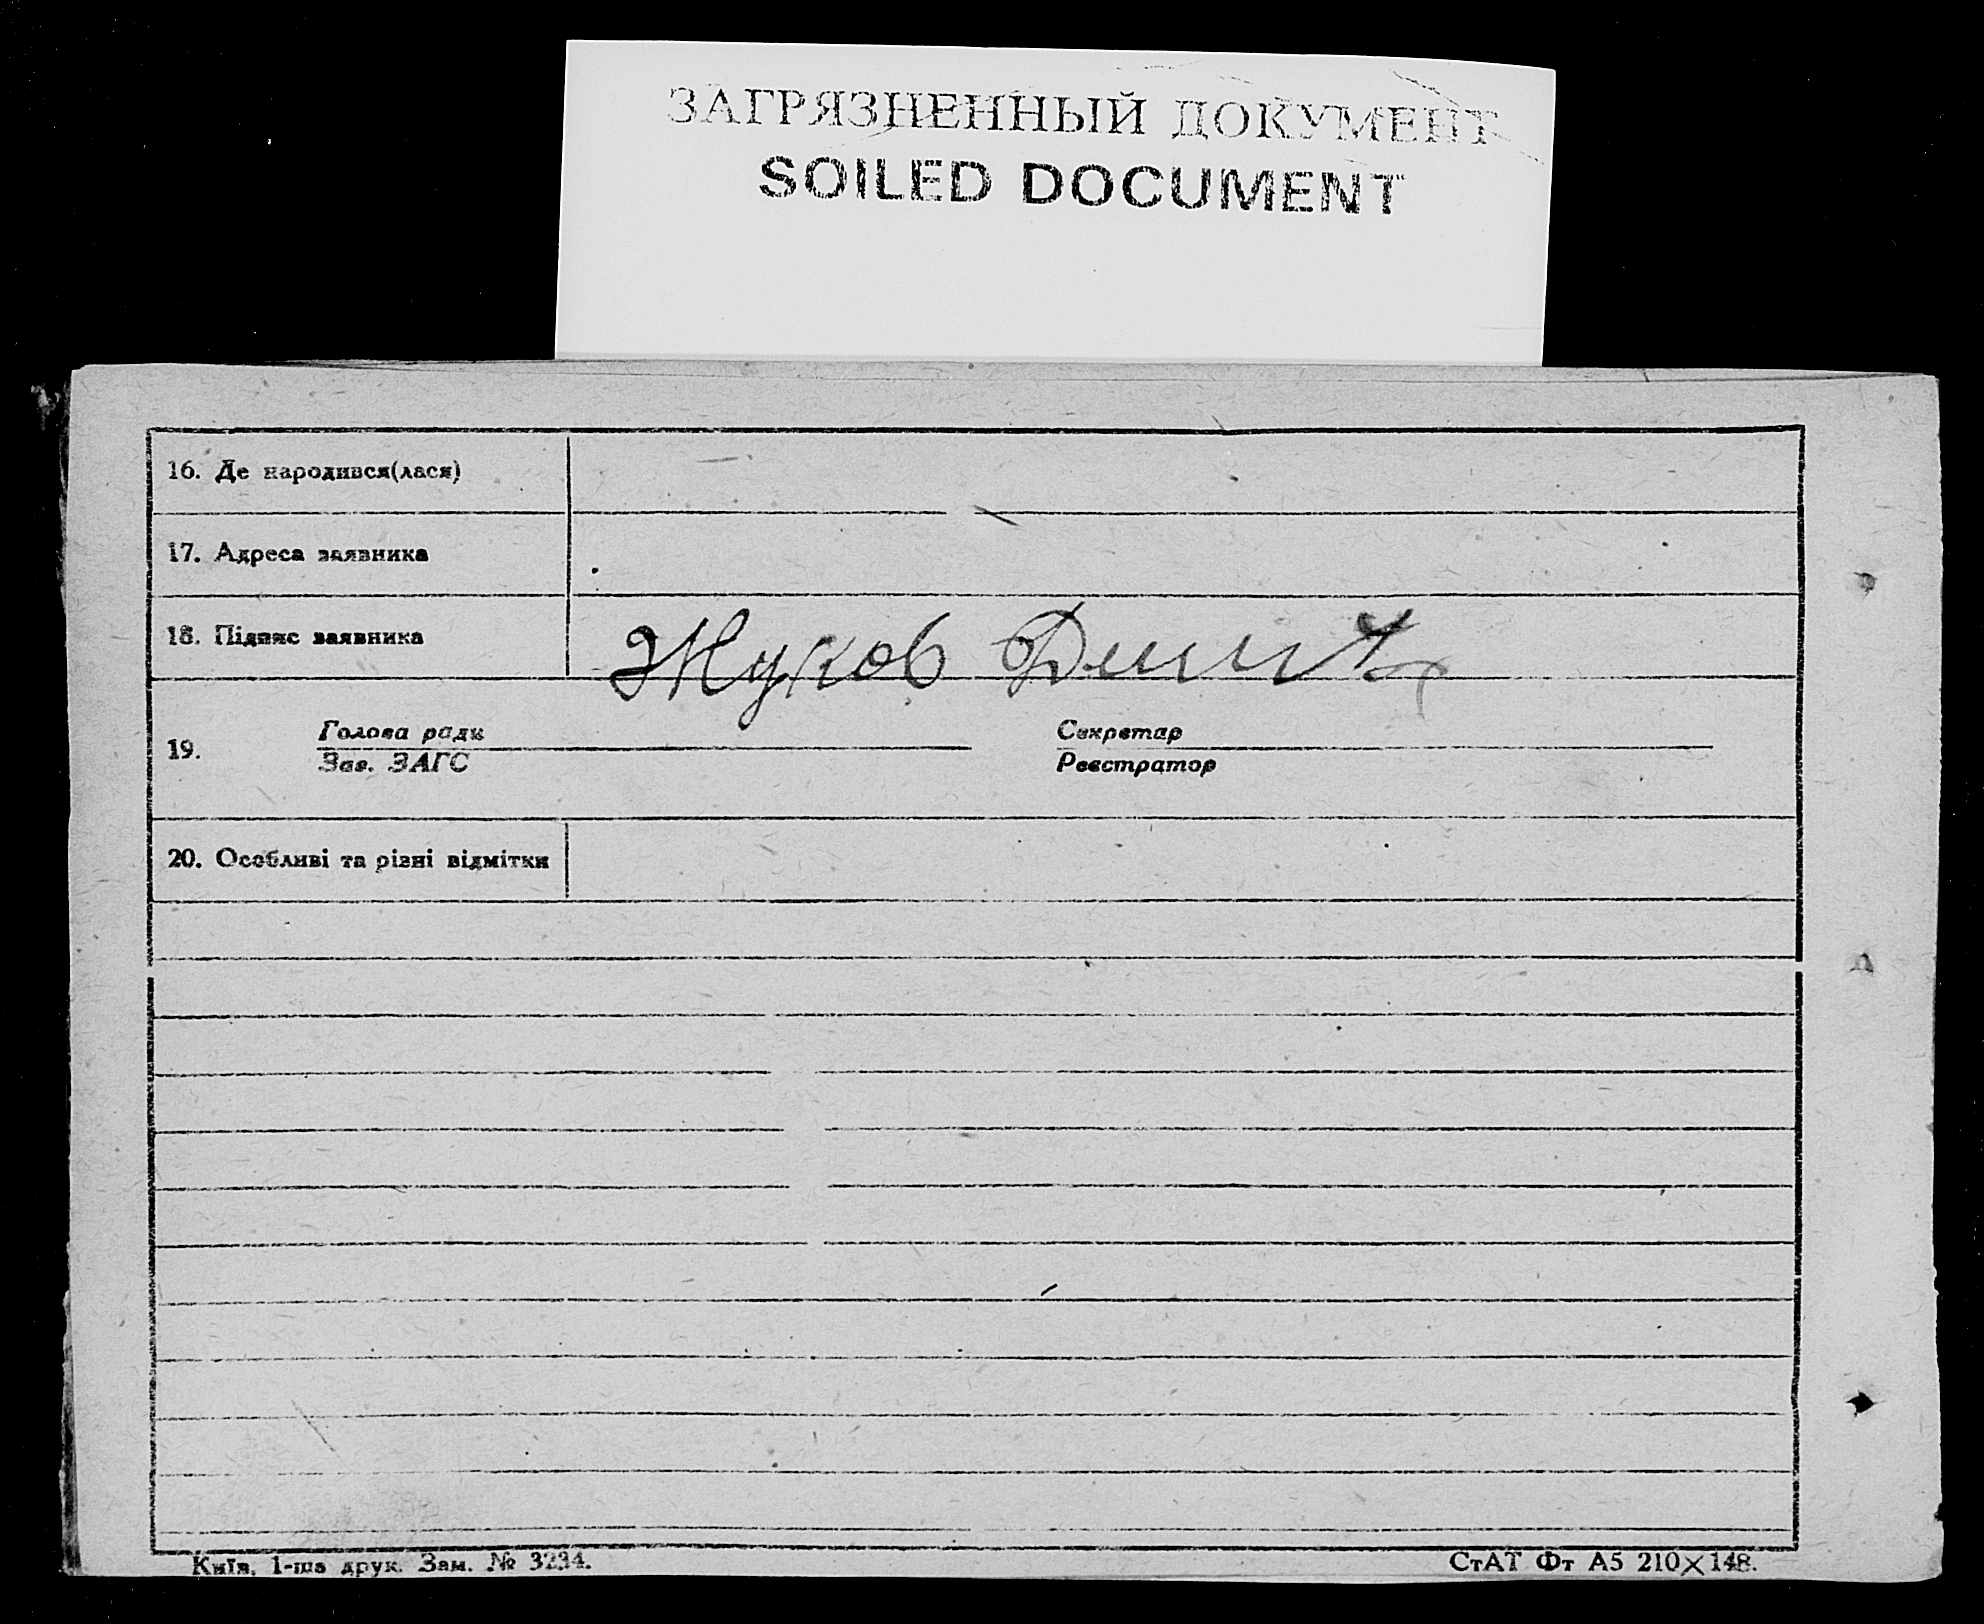 ЗАГРЯЗНЕННЫЙ ДОКУМЕНТ
SOILED DOCUMENT
16. Де народився(лася)
17. Адреса заявника
18. Підпис заявника
Жуков
19.
Голова ради
Зав. ЗАГС
Секретар
Реєстратор
20. Особливі та різні відмітки
Київ, 1-ша друк. Зам. № 3234.
СтАТ Фт А5 210×148.